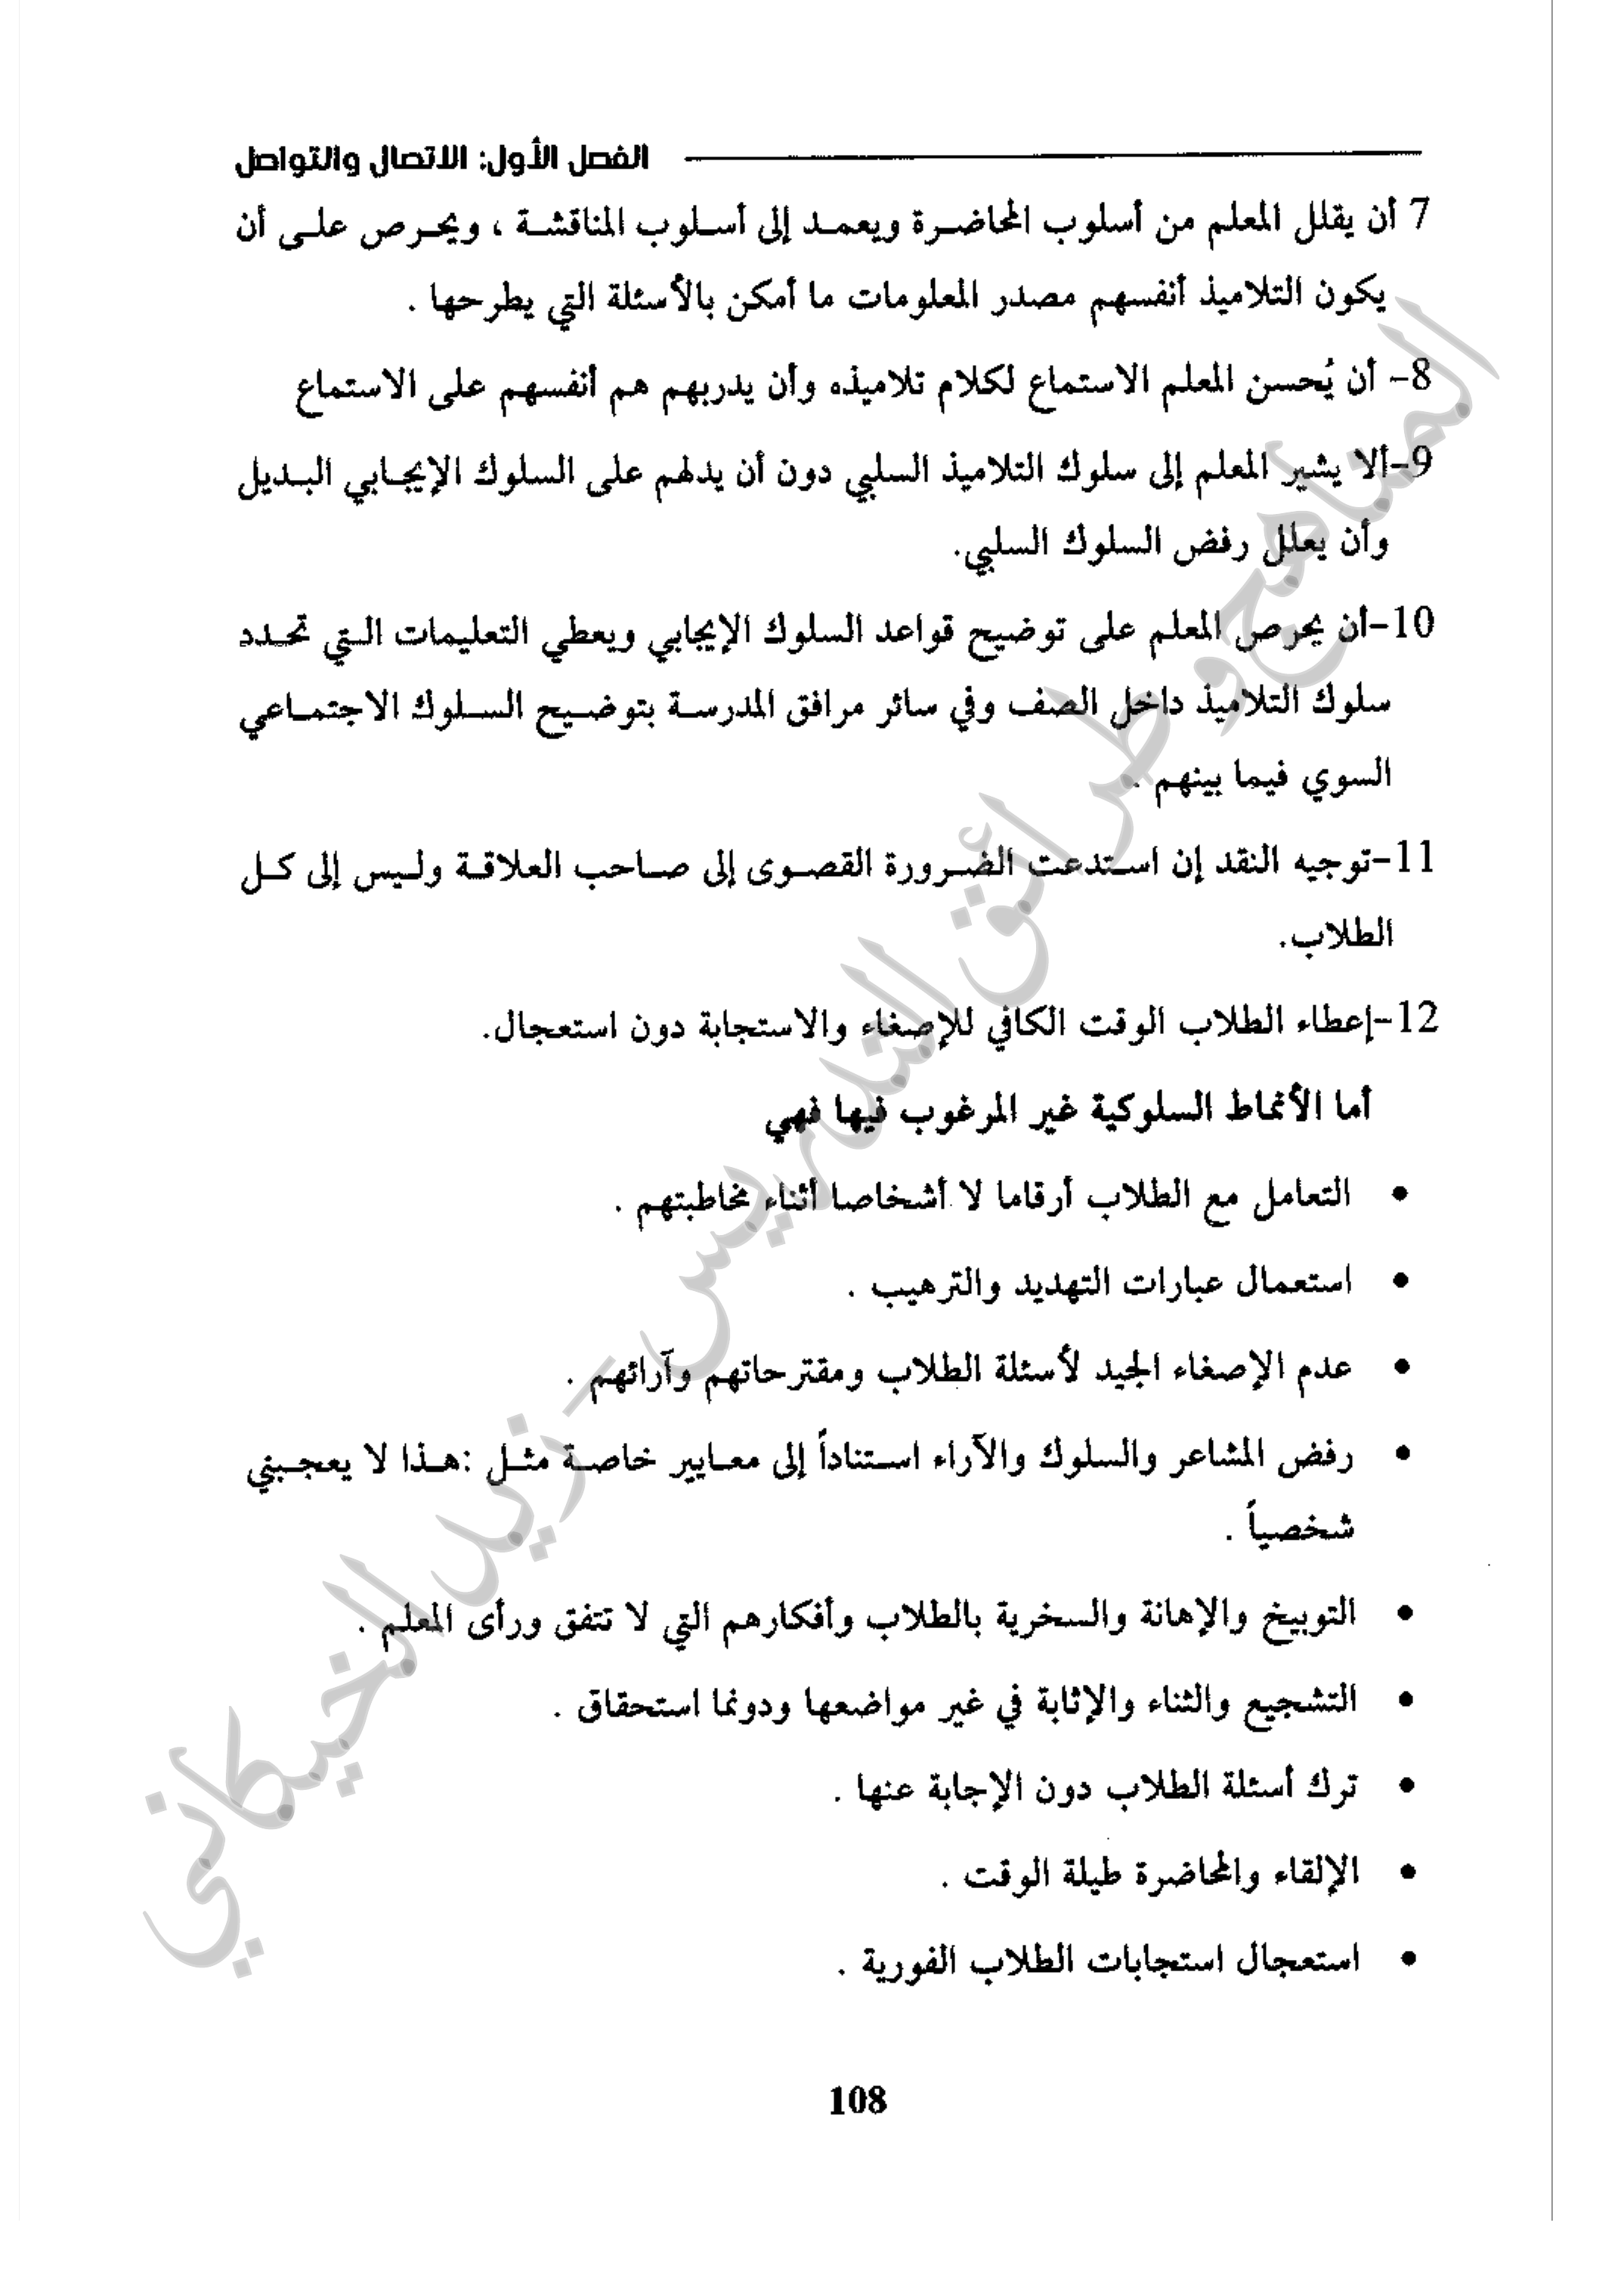 الفصل الأول: الاتصال والتواصل
7 أن يقلل المعلم من أسلوب المحاضرة ويعمد إلى أسلوب المناقشة ، ويحرص على أن
يكون التلاميذ أنفسهم مصدر المعلومات ما أمكن بالأسئلة التي يطرحها .
8- أن يُحسن المعلم الاستماع لكلام تلاميذه وأن يدربهم هم أنفسهم على الاستماع
9-ألا يشير المعلم إلى سلوك التلاميذ السلبي دون أن يدلهم على السلوك الإيجابي البديل
وأن يعلل رفض السلوك السلبي.
10-أن يحرص المعلم على توضيح قواعد السلوك الإيجابي ويعطي التعليمات التي تحدد
سلوك التلاميذ داخل الصف وفي سائر مرافق المدرسة بتوضيح السلوك الاجتماعي
السوي فيما بينهم .
11-توجيه النقد إن استدعت الضرورة القصوى إلى صاحب العلاقة وليس إلى كل
الطلاب.
12-إعطاء الطلاب الوقت الكافي للإصغاء والاستجابة دون استعجال.
أما الأنماط السلوكية غير المرغوب فيها فهي
• التعامل مع الطلاب أرقاما لا أشخاصا أثناء مخاطبتهم .
• استعمال عبارات التهديد والترهيب .
• عدم الإصغاء الجيد لأسئلة الطلاب ومقترحاتهم وآرائهم .
• رفض المشاعر والسلوك والآراء استناداً إلى معايير خاصة مثل :هذا لا يعجبني
شخصياً .
• التوبيخ والإهانة والسخرية بالطلاب وأفكارهم التي لا تتفق ورأى المعلم .
• التشجيع والثناء والإثابة في غير مواضعها ودونما استحقاق .
• ترك أسئلة الطلاب دون الإجابة عنها .
• الإلقاء والمحاضرة طيلة الوقت .
• استعجال استجابات الطلاب الفورية .
108
المناهج وطرائق التدريس - زيد الخيكاني